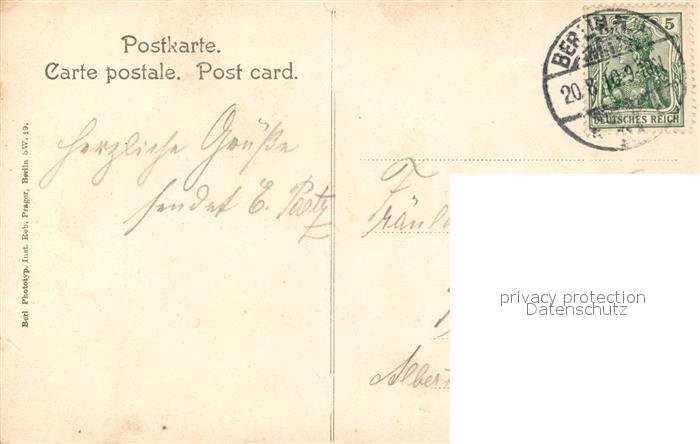 Postkarte.
Carte postale. Post card.
Herzliche Grüße
sendet E. Paetz
Berl. Phototyp. Inst. Rob. Prager, Berlin SW. 19.
BERLIN
20.8.10.
5
DEUTSCHES REICH
Fräul
Albert
privacy protection
Datenschutz